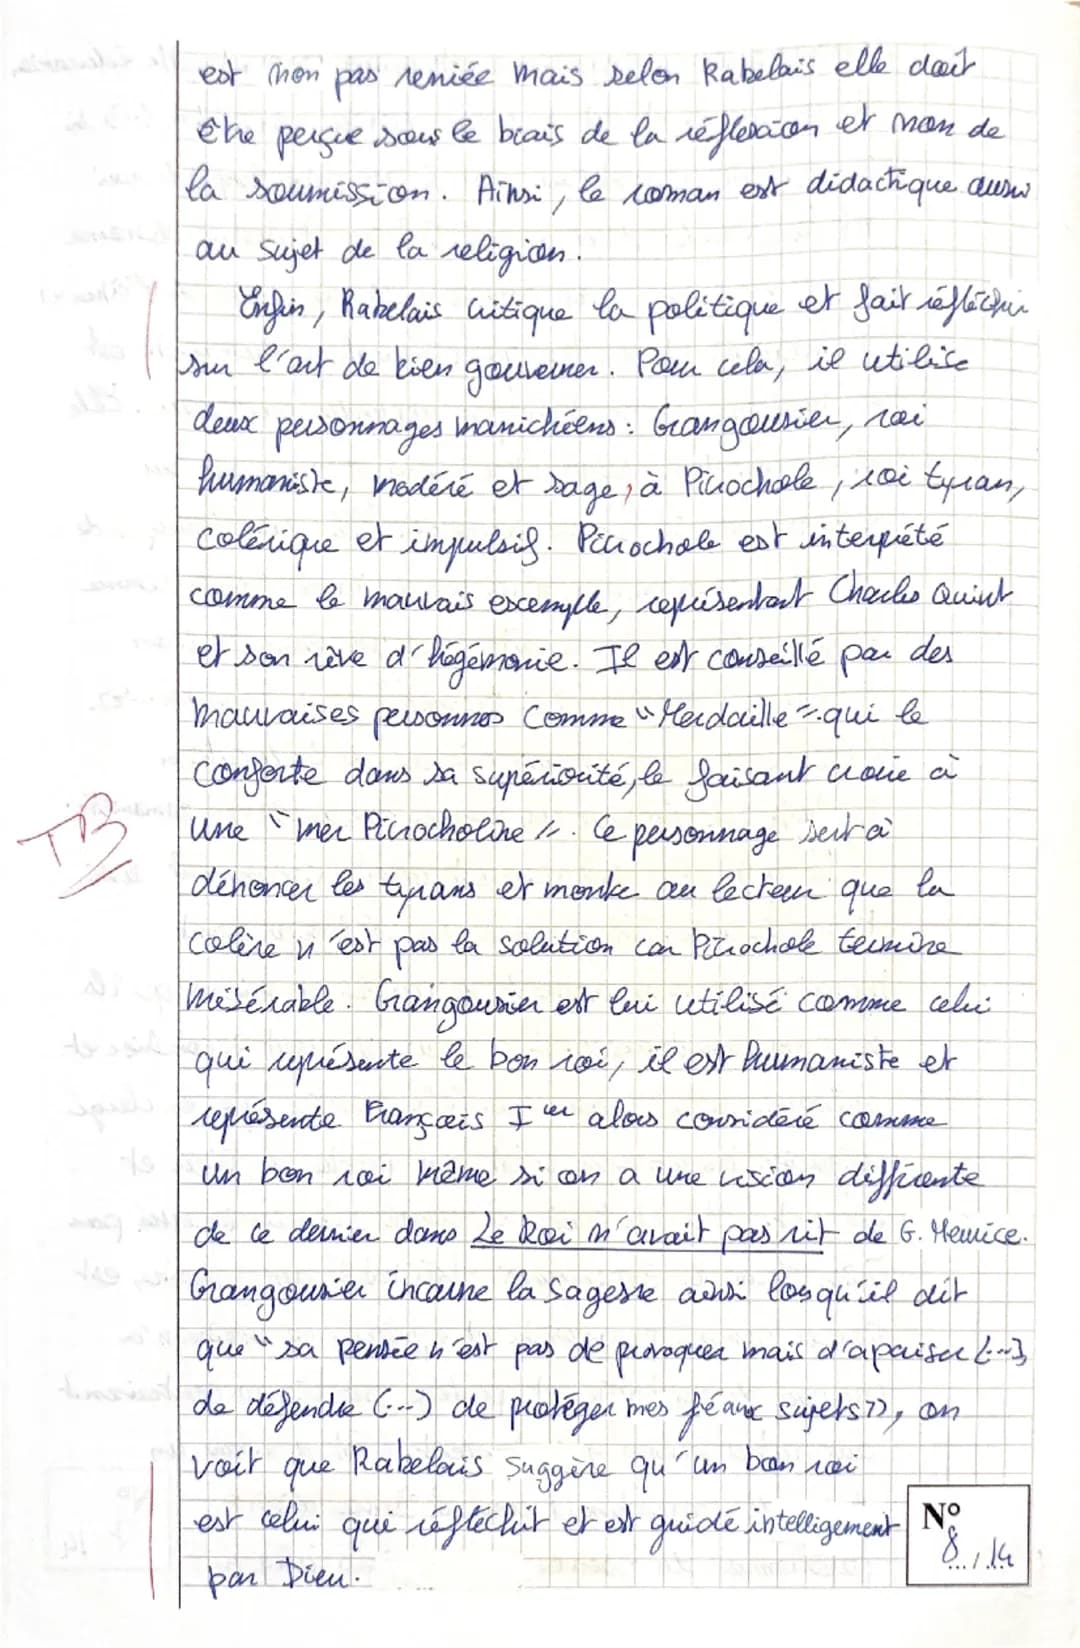 est non pas reniée mais selon Rabelais elle doit
être perçue sous le biais de la réflexion et non de
la soumission. Ainsi, le roman est didactique aussi
au sujet de la religion.
Enfin, Rabelais critique la politique et fait réfléchir
sur l'art de bien gouverner. Pour cela, il utilise
deux personnages manichéens : Grangousier, roi
humaniste, modéré et sage, à Picrochole, roi tyran,
colérique et impulsif. Picrochole est interprété
comme le mauvais exemple, représentant Charles Quint
et son rêve d'hégémonie. Il est conseillé par des
mauvaises personnes comme "Merdaille" qui le
conforte dans sa supériorité, le faisant croire à
une "mer Picrocholine". Ce personnage sert à
TB
dénoncer les tyrans et montre au lecteur que la
colère n'est pas la solution car Picrochole termine
misérable. Grangousier est lui utilisé comme celui
qui représente le bon roi, il est humaniste et
représente François Ier alors considéré comme
un bon roi même si on a une vision différente
de ce dernier dans Le Roi n'avait pas rit de G. Meurice.
Grangousier incarne la sagesse ainsi losqu'il dit
que "sa pensée n'est pas de provoquer mais d'apaiser (...)
de défendre (...) de protéger mes féaux sujets", on
voit que Rabelais suggère qu'un bon roi
est celui qui réfléchit et est guidé intelligement
par Dieu.
N°
8.../.14